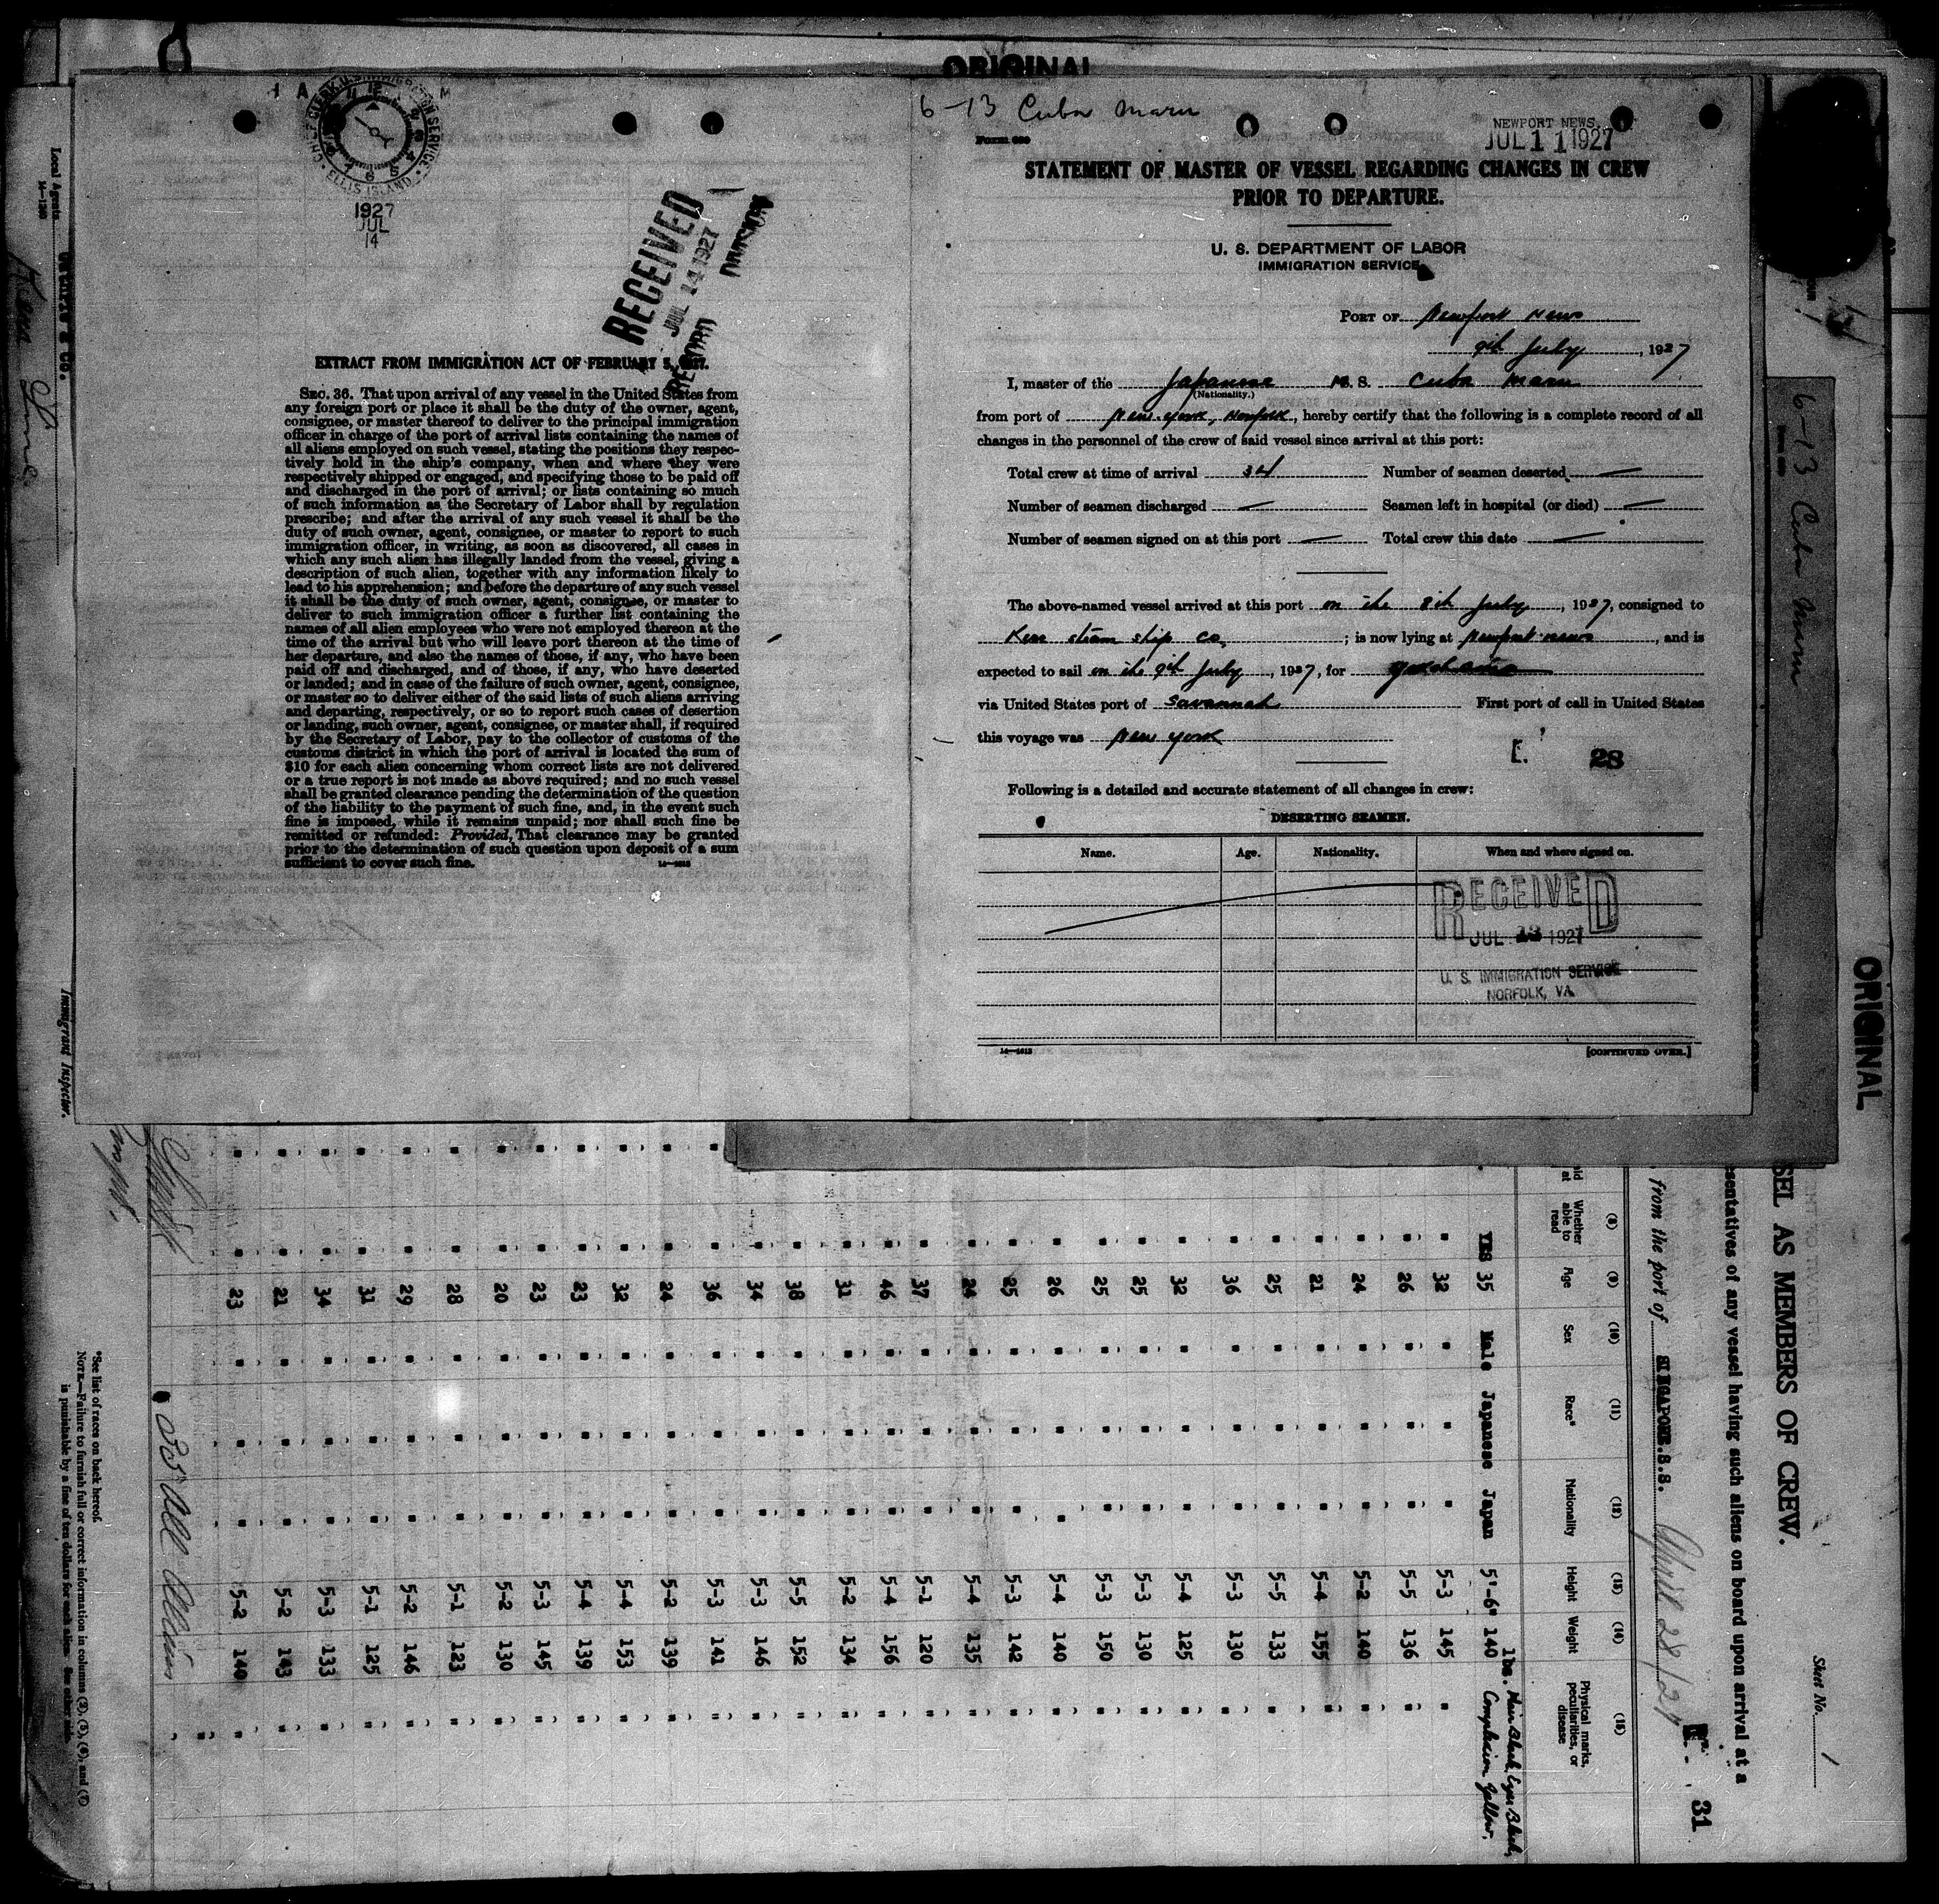 ORIGINAL
CHIEF CLERK U.S. IMMIGRATION SERVICE
ELLIS ISLAND
1927
JUL
14
RECEIVED
JUL 14 1927
RECORD DIVISION
EXTRACT FROM IMMIGRATION ACT OF FEBRUARY 5, 1917.
SEC. 36. That upon arrival of any vessel in the United States from
any foreign port or place it shall be the duty of the owner, agent,
consignee, or master thereof to deliver to the principal immigration
officer in charge of the port of arrival lists containing the names of
all aliens employed on such vessel, stating the positions they respec-
tively hold in the ship's company, when and where they were
respectively shipped or engaged, and specifying those to be paid off
and discharged in the port of arrival; or lists containing so much
of such information as the Secretary of Labor shall by regulation
prescribe; and after the arrival of any such vessel it shall be the
duty of such owner, agent, consignee, or master to report to such
immigration officer, in writing, as soon as discovered, all cases in
which any such alien has illegally landed from the vessel, giving a
description of such alien, together with any information likely to
lead to his apprehension; and before the departure of any such vessel
it shall be the duty of such owner, agent, consignee, or master to
deliver to such immigration officer a further list containing the
names of all alien employees who were not employed thereon at the
time of the arrival but who will leave port thereon at the time of
her departure, and also the names of those, if any, who have been
paid off and discharged, and of those, if any, who have deserted
or landed; and in case of the failure of such owner, agent, consignee,
or master so to deliver either of the said lists of such aliens arriving
and departing, respectively, or so to report such cases of desertion
or landing, such owner, agent, consignee, or master shall, if required
by the Secretary of Labor, pay to the collector of customs of the
customs district in which the port of arrival is located the sum of
$10 for each alien concerning whom correct lists are not delivered
or a true report is not made as above required; and no such vessel
shall be granted clearance pending the determination of the question
of the liability to the payment of such fine, and, in the event such
fine is imposed, while it remains unpaid; nor shall such fine be
remitted or refunded: Provided, That clearance may be granted
prior to the determination of such question upon deposit of a sum
sufficient to cover such fine.
6-13 Cuba Maru
Form 680
NEWPORT NEWS,
JUL 11 1927
STATEMENT OF MASTER OF VESSEL REGARDING CHANGES IN CREW
PRIOR TO DEPARTURE.
U. S. DEPARTMENT OF LABOR
IMMIGRATION SERVICE
PORT OF Newport News
9th July, 1927
I, master of the Japanese M. S. Cuba Maru
(Nationality.)
from port of New-york, Norfolk, hereby certify that the following is a complete record of all
changes in the personnel of the crew of said vessel since arrival at this port:
Total crew at time of arrival 34 Number of seamen deserted —
Number of seamen discharged — Seamen left in hospital (or died) —
Number of seamen signed on at this port — Total crew this date —
The above-named vessel arrived at this port on the 8th July, 1927, consigned to
Kerr steam ship co,; is now lying at Newport-news, and is
expected to sail on the 9th July, 1927, for yokohama
via United States port of Savannah First port of call in United States
this voyage was New york
E. 28
Following is a detailed and accurate statement of all changes in crew:
DESERTING SEAMEN.
Name. Age. Nationality. When and where signed on.
RECEIVED
JUL 1927
U. S. IMMIGRATION SERVICE
NORFOLK, VA.
14-1613
[CONTINUED OVER.]
6-13 Cuba Maru
ORIGINAL
Local Agents
14-1240
Immigrant Inspector.
Sheet No. 1
SEL AS MEMBERS OF CREW.
sentatives of any vessel having such aliens on board upon arrival at a
from the port of SINGAPORE.S.S. April 28/27
E. 31
(8) (9) (10) (11) (12) (13) (14) (15)
Whether able to read Age Sex Race* Nationality Height Weight Physical marks, peculiarities, or disease
lbs. Hair Black, Eyes Black,
YES 35 Male Japanese Japan 5'-6" 140 Complexion Yellow,
" 32 " " " 5-3 145 "
" 26 " " " 5-5 136 "
" 24 " " " 5-2 140 "
" 21 " " " 5-4 155 "
" 25 " " " 5-5 133 "
" 36 " " " 5-3 130 "
" 32 " " " 5-4 125 "
" 25 " " " 5-3 130 "
" 25 " " " 5-3 150 "
" 26 " " " 5-4 140 "
" 25 " " " 5-3 142 "
" 24 " " " 5-4 135 "
" 37 " " " 5-1 120 "
" 46 " " " 5-4 156 "
" 31 " " " 5-2 134 "
" 38 " " " 5-5 152 "
" 34 " " " 5-3 146 "
" 36 " " " 5-3 141 "
" 24 " " " 5-2 139 "
" 32 " " " 5-4 153 "
" 23 " " " 5-4 139 "
" 23 " " " 5-3 145 "
" 20 " " " 5-2 130 "
" 28 " " " 5-1 123 "
" 29 " " " 5-2 146 "
" 31 " " " 5-1 125 "
" 34 " " " 5-3 133 "
" 21 " " " 5-2 143 "
" 23 " " " 5-2 140 "
*See list of races on back hereof.
NOTE.—Failure to furnish full or correct information in columns (2), (5), (6), and (7)
is punishable by a fine of ten dollars for each alien. See other side.